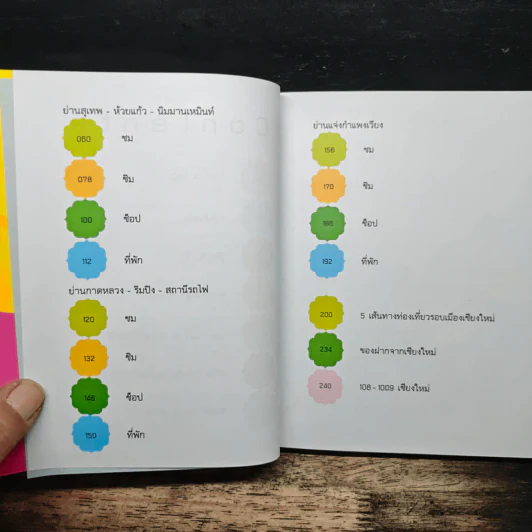 ย่านสุเทพ - ห้วยแก้ว - นิมมานเหมินท์
060 ชม
078 ชิม
100 ช็อป
112 ที่พัก
ย่านกาดหลวง - ริมปิง - สถานีรถไฟ
120 ชม
132 ชิม
148 ช็อป
150 ที่พัก
ย่านแจ่งกำแพงเวียง
156 ชม
170 ชิม
188 ช็อป
192 ที่พัก
200 5 เส้นทางท่องเที่ยวรอบเมืองเชียงใหม่
234 ของฝากจากเชียงใหม่
240 108 - 1009 เชียงใหม่